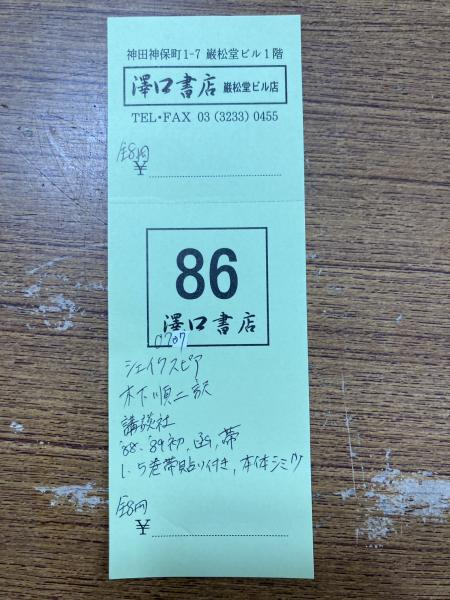 神田神保町1-7 巌松堂ビル1階
澤口書店 巌松堂ビル店
TEL・FAX 03 (3233) 0455
全8冊
¥
86
澤口書店
0707
シェイクスピア
木下順二訳
講談社
'88-'89初,函,帯
1、5巻帯貼り付き,本体シミ少
全8冊
¥